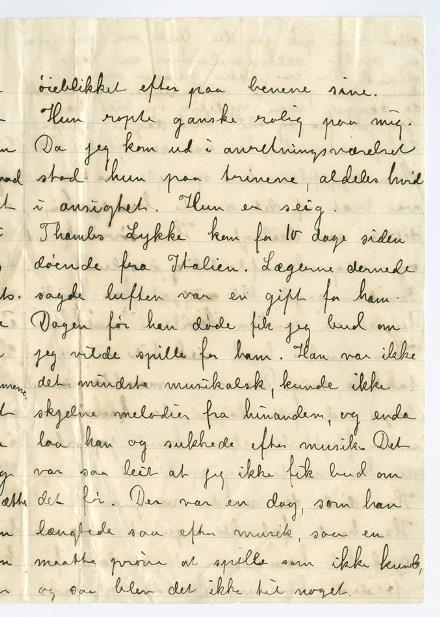 øieblikket efter paa benene sine.
Hun ropte ganske rolig paa mig.
Da jeg kom ud i anretningsværelset
stod hun paa trinene, aldeles hvid
i ansigtet. Hun er seig.
Thambs Lykke kom for 10 dage siden
døende fra Italien. Lægerne dernede
sagde luften var en gift for ham.
Dagen før han døde fik jeg bud om
jeg vilde spille for ham. Han var ikke
det mindste musikalsk, kunde ikke
skjelne melodier fra hinanden, og enda
laa han og sukkede efter musik. Det
var saa leit at jeg ikke fik bud om
det før. Der var en dag, som han
længtede saa efter musik, saa en
maatte prøve at spille som ikke kunde,
og saa blev det ikke til noget.